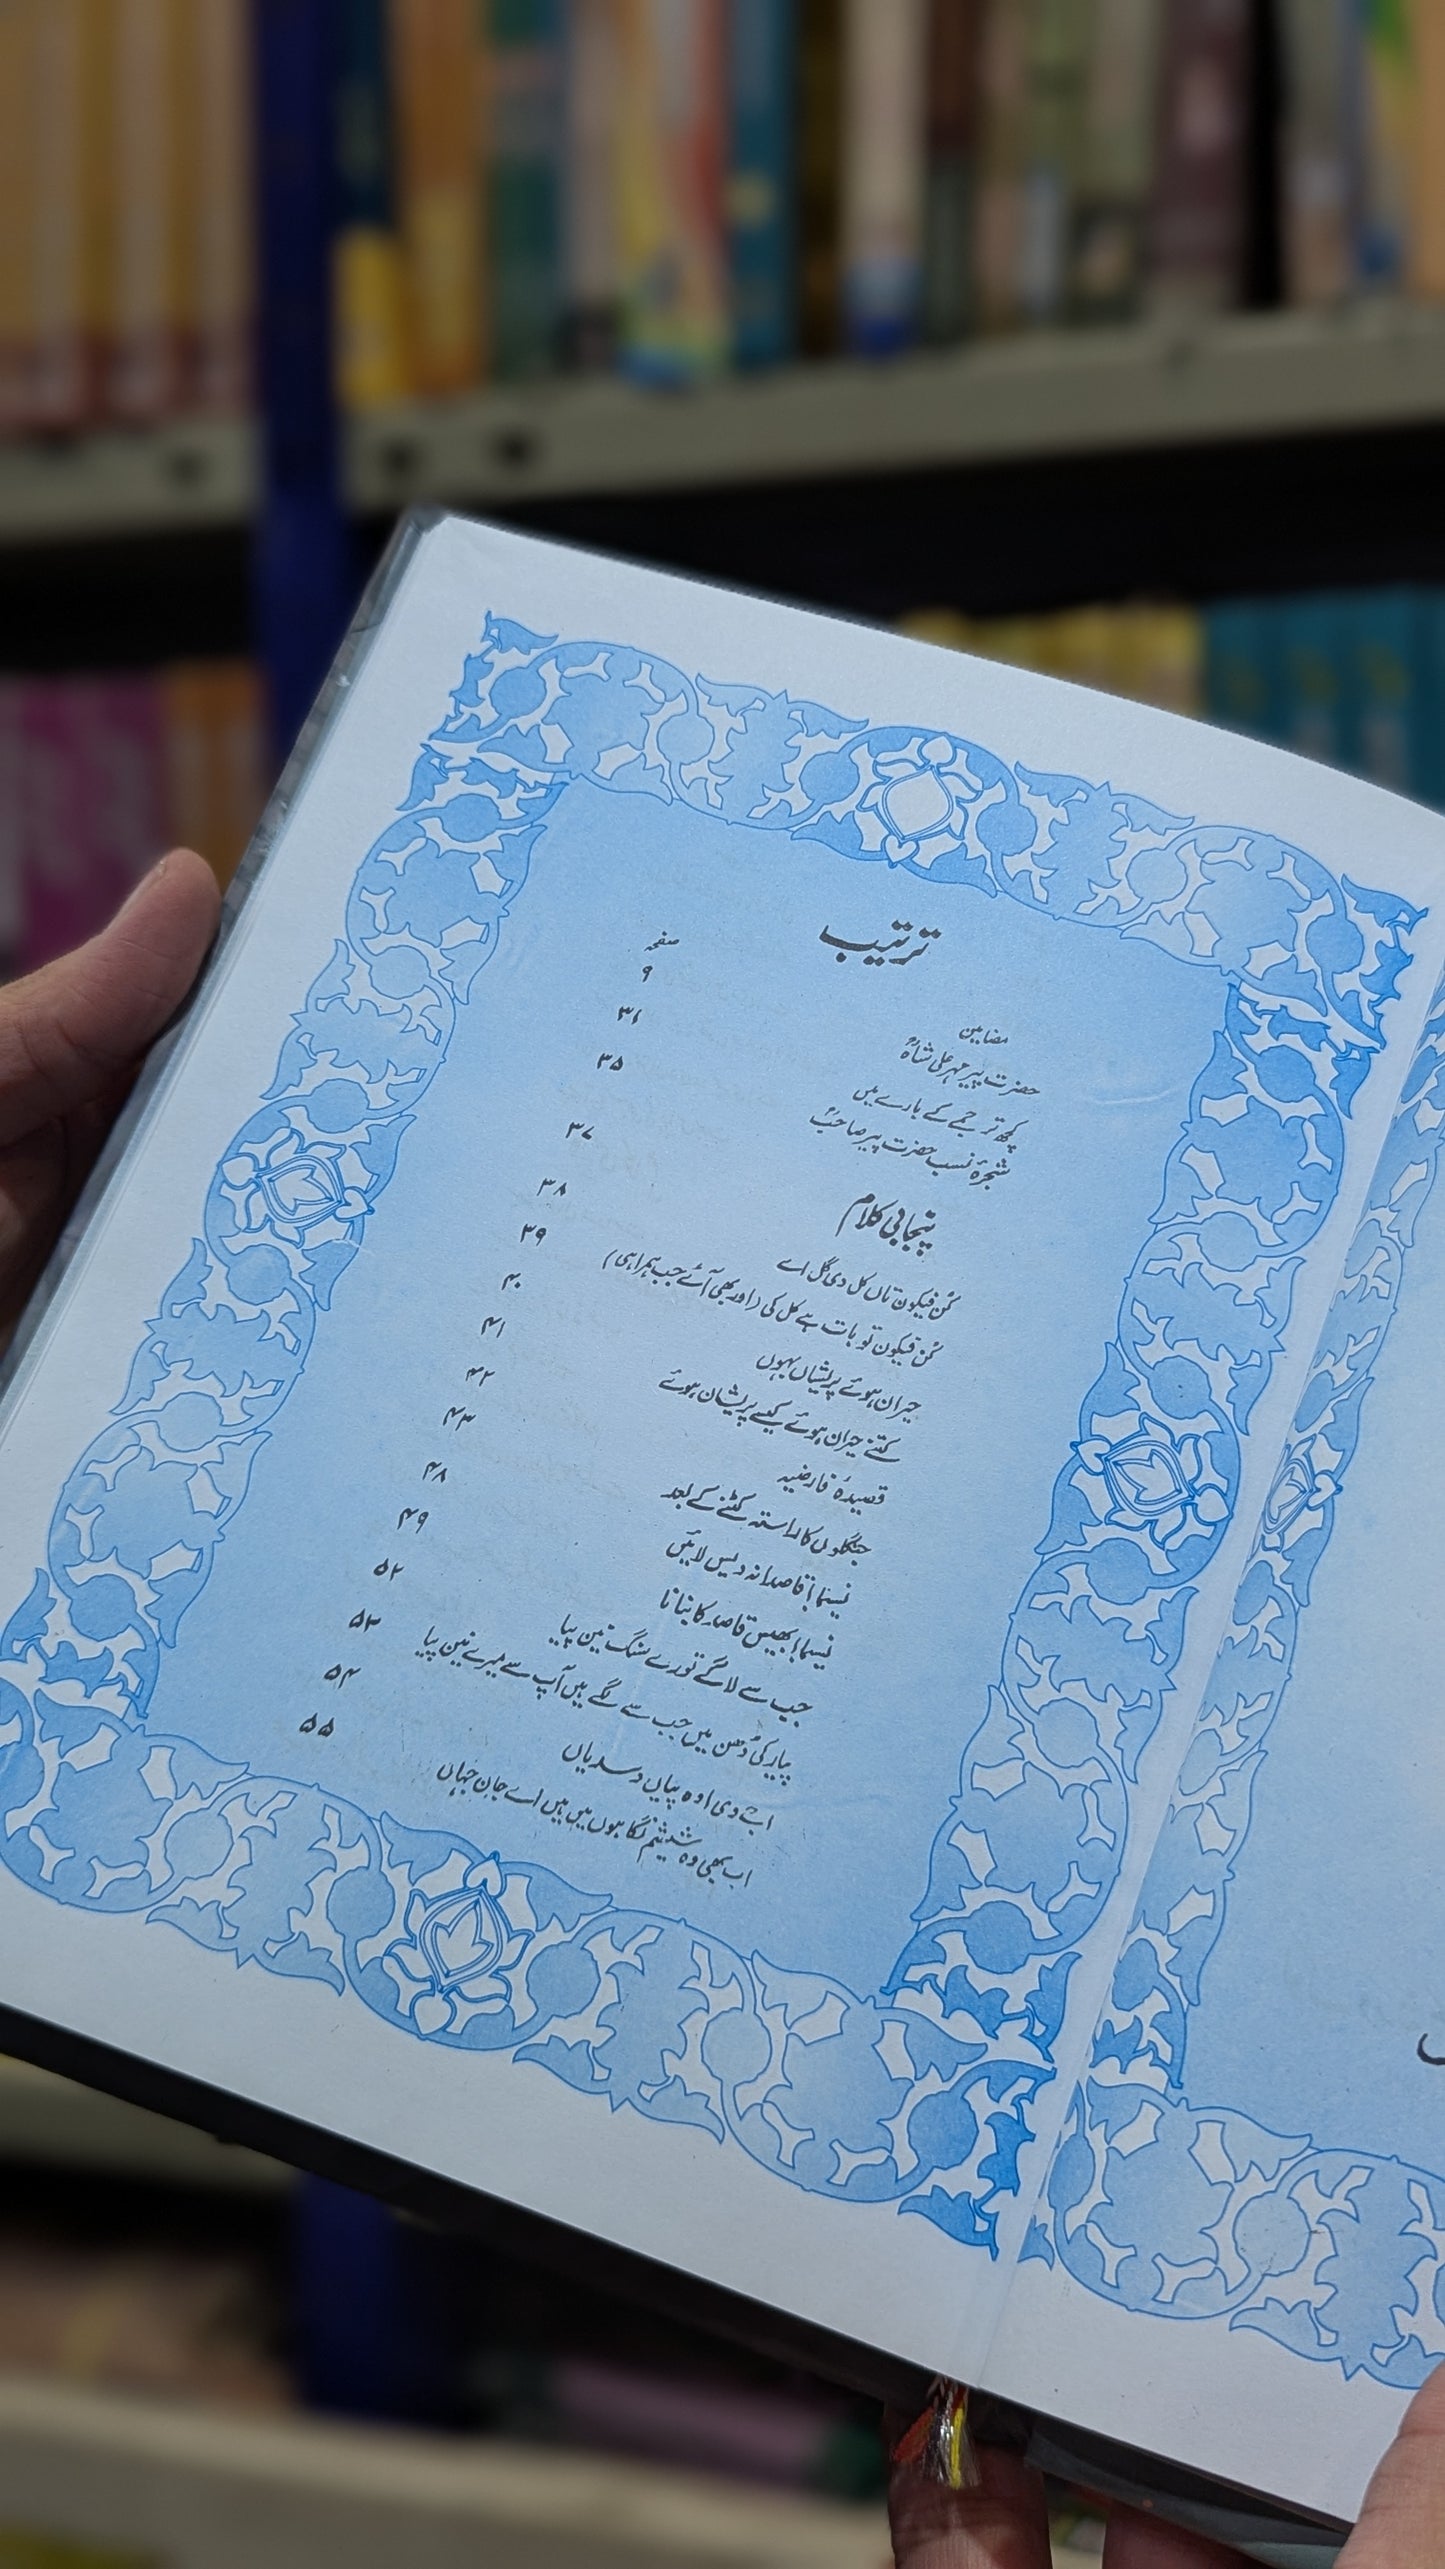 ترتیب
مضامین صفحہ
حضرت پیر مہر علی شاہؒ ۹
کچھ ترجمے کے بارے میں ۳۱
شجرۂ نسب حضرت پیر صاحبؒ ۳۵
پنجابی کلام ۳۷
کُن فیکون تاں کل دی گل اے ۳۸
کُن فیکون تو بات ہے کل کی (اور بھی آئے جب ہمراہی) ۳۹
حیران ہوئے پریشاں ہوں ۴۰
کتنے حیران ہوئے کیسے پریشان ہوئے ۴۱
قصیدۂ فارضیہ ۴۲
جنگلوں کا راستہ کٹنے کے بعد ۴۳
نسیما! قاصدانہ ویس لائیں ۴۸
نسیما! بھیس قاصد کا بنانا ۴۹
جب سے لاگے تورے سنگ نین پیا ۵۲
پیار کی دُھن میں جب سے لگے ہیں آپ سے میرے نین پیا ۵۳
اجے وی اوہ پیاں دسدیاں ۵۴
اب بھی وہ نگاہوں میں ہیں اے جانِ جہاں ۵۵